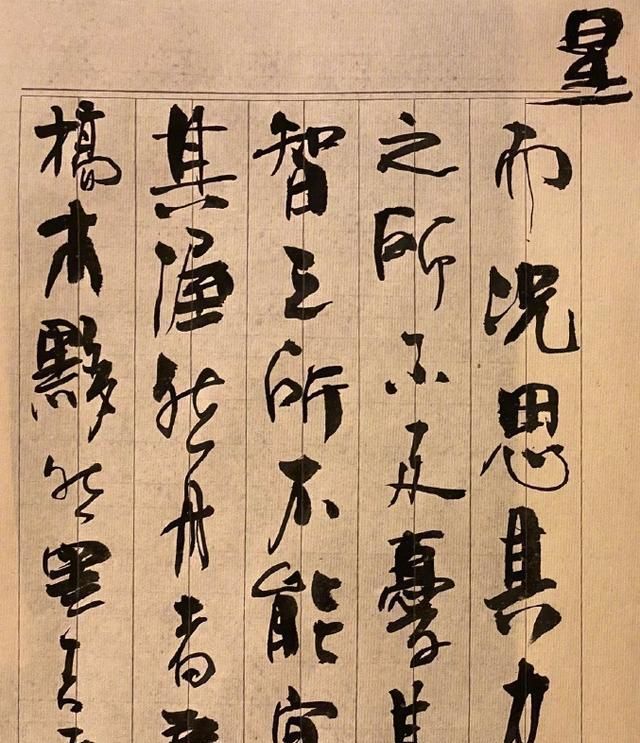 星
而况思其力
之所不及憂其
智之所不能宜
其渥然丹者為
槁木黟然黑者